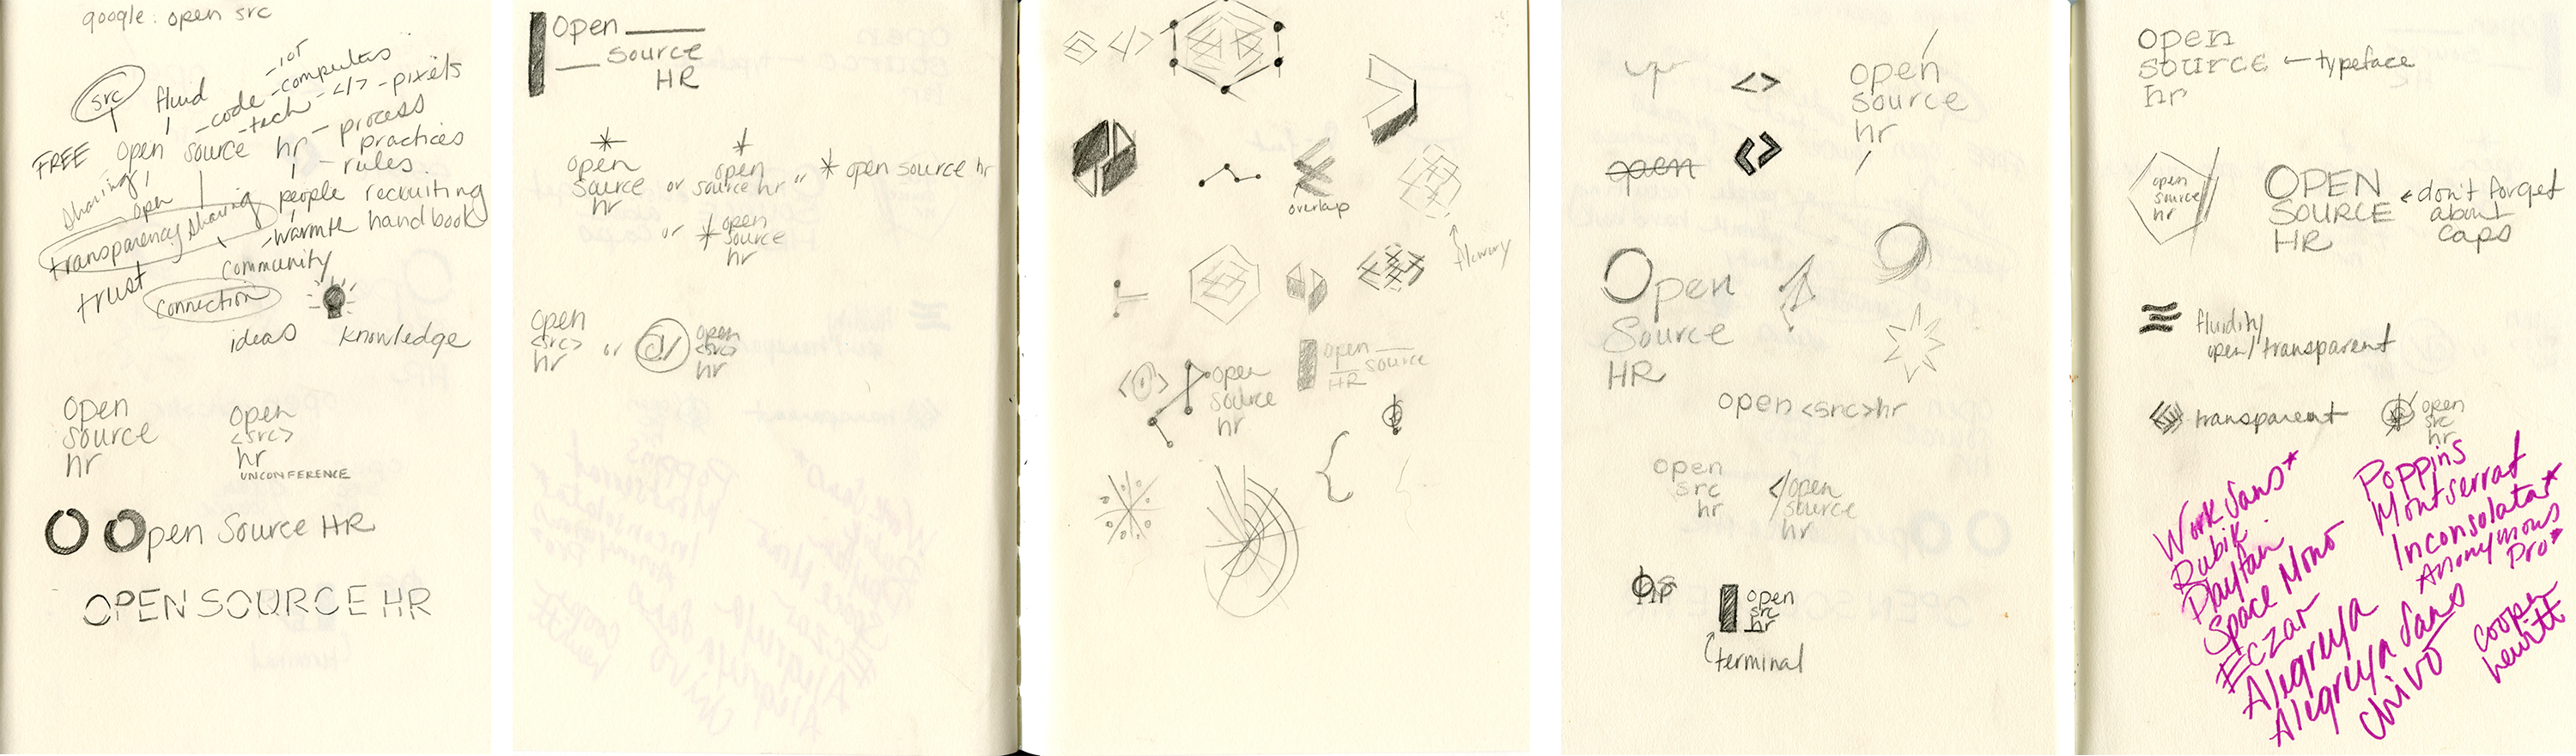 google: open src
src
fluid
-iot
-computers
-code
-tech
-</>
-pixels
FREE
open source hr
-process
practices
-rules
sharing
open
people recruiting
transparency sharing
-warmth handbook
trust
community
connection
ideas
knowledge
open
source
hr
open
<src>
hr
UNCONFERENCE
O Open Source HR
OPEN SOURCE HR
Open
Source
HR
*
open
source
hr
or
*
open
source hr
or
* open source hr
or
* open
source
hr
open
<src>
hr
or
open
<src>
hr
</>
overlap
flowery
open
source
HR
open
source
hr
{
<>
open
source
hr
open
<>
Open
Source
HR
open <src> hr
open
src
hr
</open
source
hr
os
hr
open
src
hr
terminal
open
source ← typeface
hr
open
source
hr
OPEN
SOURCE
HR
← don't forget
about
caps
fluidity
open/transparent
transparent
open
src
hr
Work Sans*
Rubik
Playfair
Space Mono
Eczar
Alegreya
Alegreya Sans
Chivo
Poppins
Montserrat
Inconsolata*
Anonymous
Pro*
cooper
hewitt